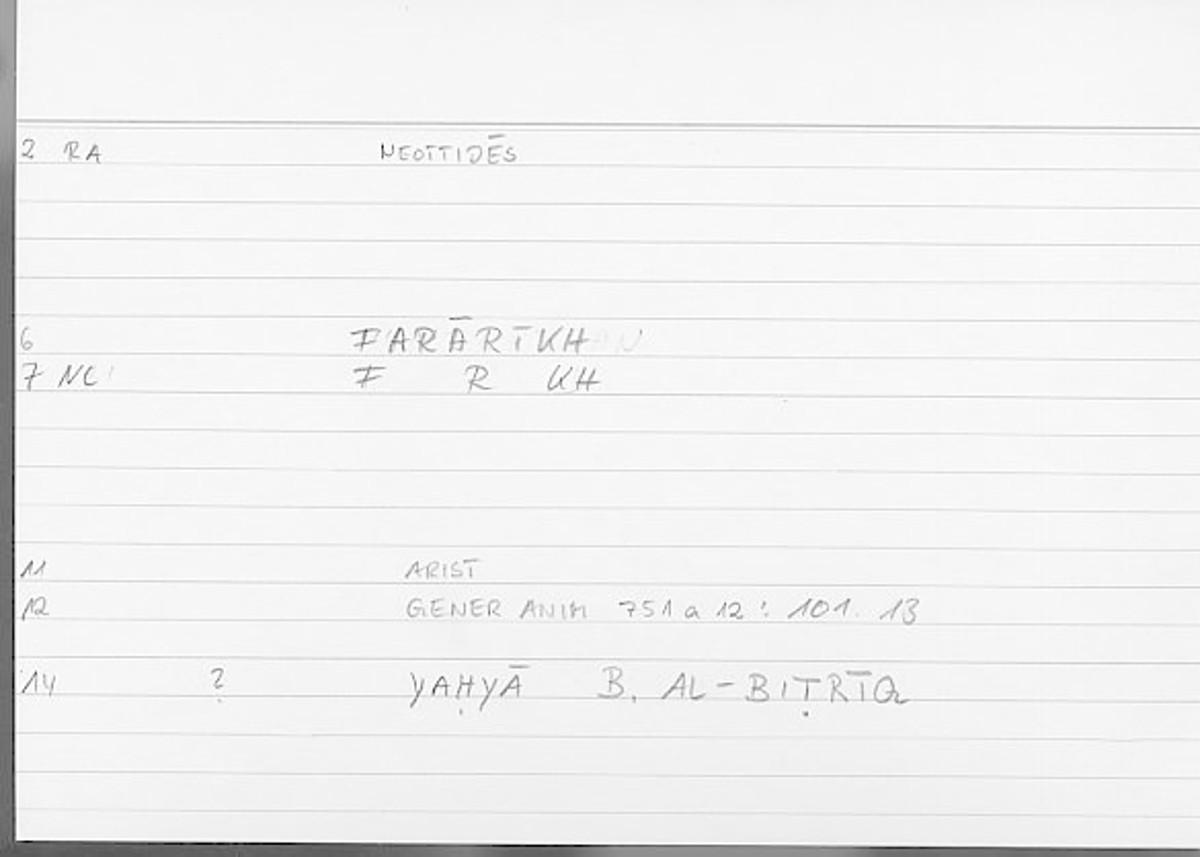 2 RA NEOTTIDĒS
6 FARĀRĪKH
7 NC F R KH
11 ARIST
12 GENER ANIM 751 a 12 : 101. 13
14 ? YAḤYĀ B. AL-BIṬRĪQ